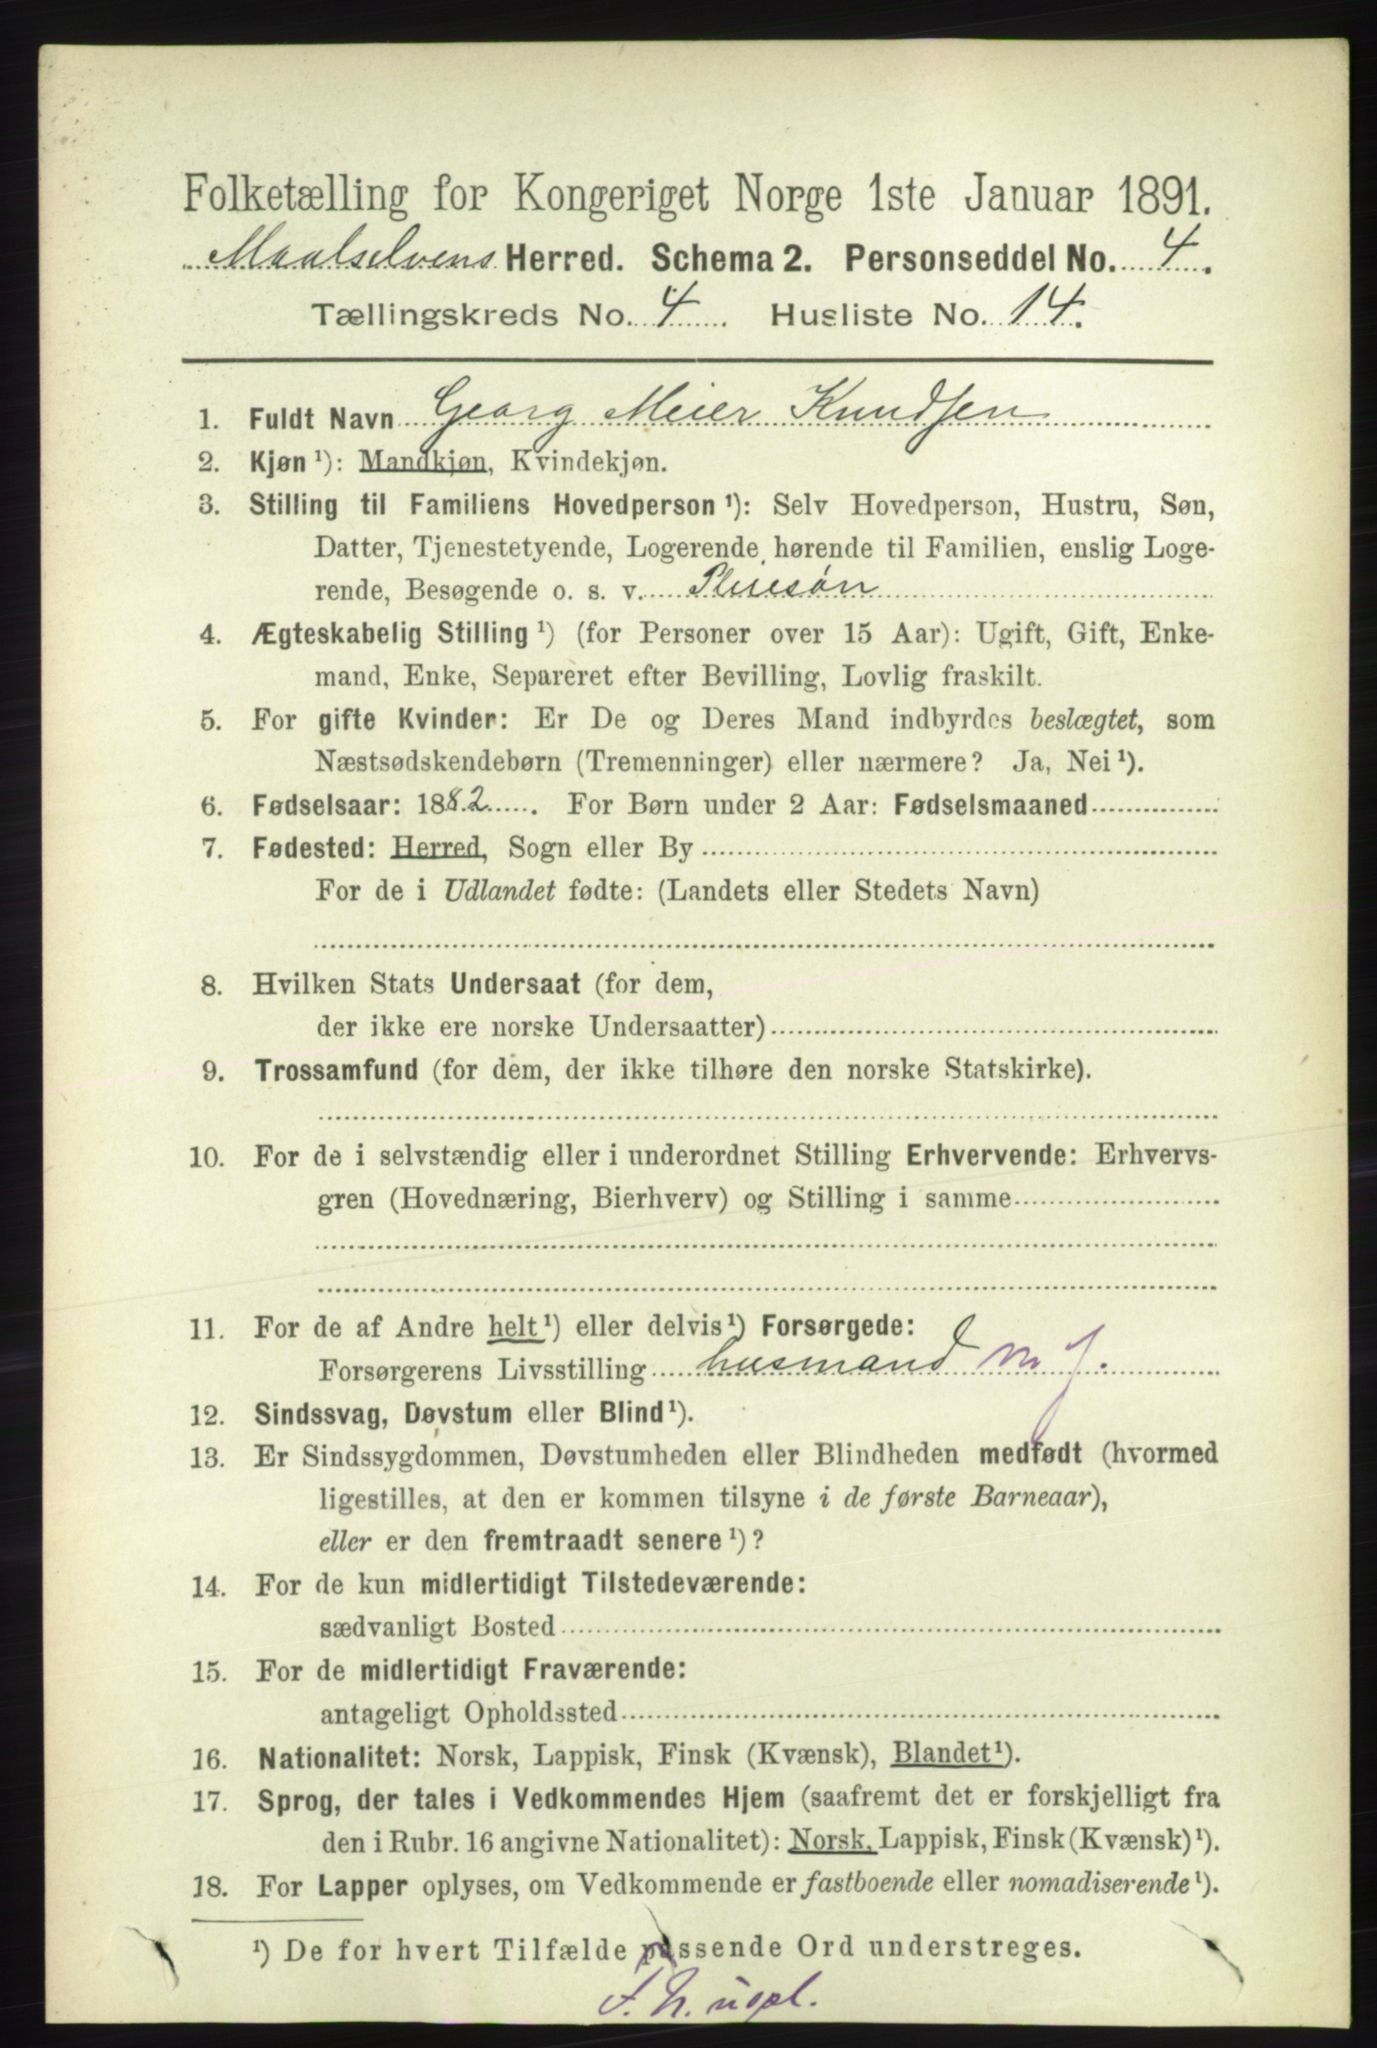 Folketælling for Kongeriget Norge 1ste Januar 1891.
Maalselvens Herred. Schema 2. Personseddel No. 4.
Tællingskreds No. 4. Husliste No. 14.
1. Fuldt Navn Georg Meier Knudsen
2. Kjøn ¹): Mandkjøn, Kvindekjøn.
3. Stilling til Familiens Hovedperson ¹): Selv Hovedperson, Hustru, Søn,
Datter, Tjenestetyende, Logerende hørende til Familien, enslig Loge-
rende, Besøgende o. s. v. Pleiesøn
4. Ægteskabelig Stilling ¹) (for Personer over 15 Aar): Ugift, Gift, Enke-
mand, Enke, Separeret efter Bevilling, Lovlig fraskilt.
5. For gifte Kvinder: Er De og Deres Mand indbyrdes beslægtet, som
Næstsødskendebørn (Tremenninger) eller nærmere? Ja, Nei ¹).
6. Fødselsaar: 1882. For Børn under 2 Aar: Fødselsmaaned
7. Fødested: Herred, Sogn eller By
For de i Udlandet fødte: (Landets eller Stedets Navn)
8. Hvilken Stats Undersaat (for dem,
der ikke ere norske Undersaatter)
9. Trossamfund (for dem, der ikke tilhøre den norske Statskirke).
10. For de i selvstændig eller i underordnet Stilling Erhvervende: Erhvervs-
gren (Hovednæring, Bierhverv) og Stilling i samme
11. For de af Andre helt ¹) eller delvis ¹) Forsørgede:
Forsørgerens Livsstilling husmand m j.
12. Sindssvag, Døvstum eller Blind ¹).
13. Er Sindssygdommen, Døvstumheden eller Blindheden medfødt (hvormed
ligestilles, at den er kommen tilsyne i de første Barneaar),
eller er den fremtraadt senere ¹)?
14. For de kun midlertidigt Tilstedeværende:
sædvanligt Bosted
15. For de midlertidigt Fraværende:
antageligt Opholdssted
16. Nationalitet: Norsk, Lappisk, Finsk (Kvænsk), Blandet ¹).
17. Sprog, der tales i Vedkommendes Hjem (saafremt det er forskjelligt fra
den i Rubr. 16 angivne Nationalitet): Norsk, Lappisk, Finsk (Kvænsk) ¹).
18. For Lapper oplyses, om Vedkommende er fastboende eller nomadiserende ¹).
¹) De for hvert Tilfælde passende Ord understreges.